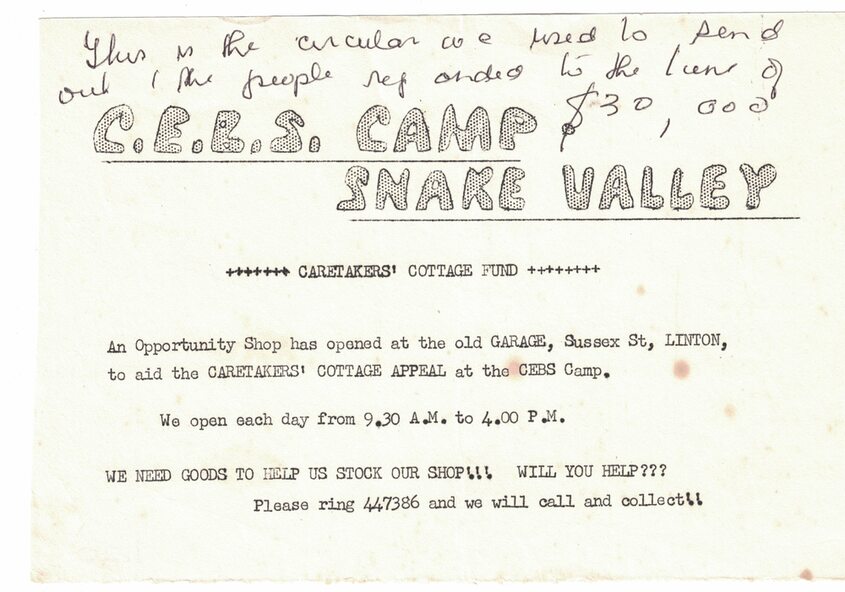 This is the circular we used to send
out & the people responded to the tune of
$30,000
C.E.B.S. CAMP
SNAKE VALLEY
+++++++ CARETAKERS' COTTAGE FUND ++++++++
An Opportunity Shop has opened at the old GARAGE, Sussex St, LINTON,
to aid the CARETAKERS' COTTAGE APPEAL at the CEBS Camp.
We open each day from 9.30 A.M. to 4.00 P.M.
WE NEED GOODS TO HELP US STOCK OUR SHOP!!! WILL YOU HELP???
Please ring 447386 and we will call and collect!!